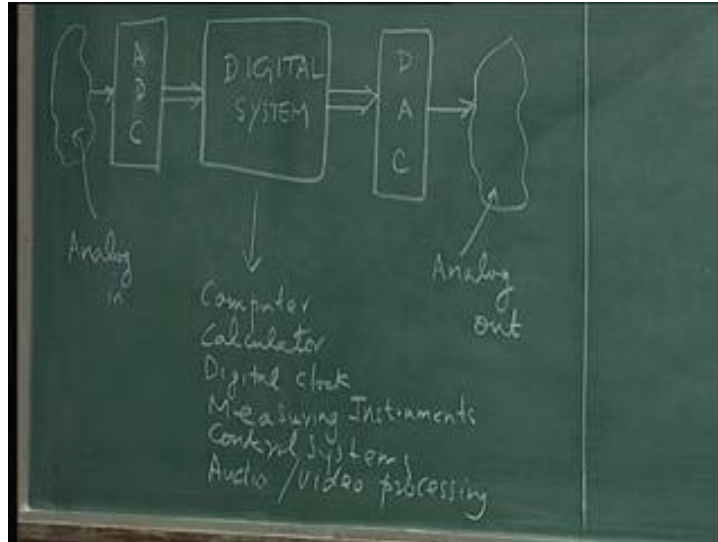 ADC
DIGITAL
SYSTEM
DAC
Analog
in
Analog
out
Computer
Calculator
Digital clock
Measuring Instruments
Control Systems
Audio / Video processing